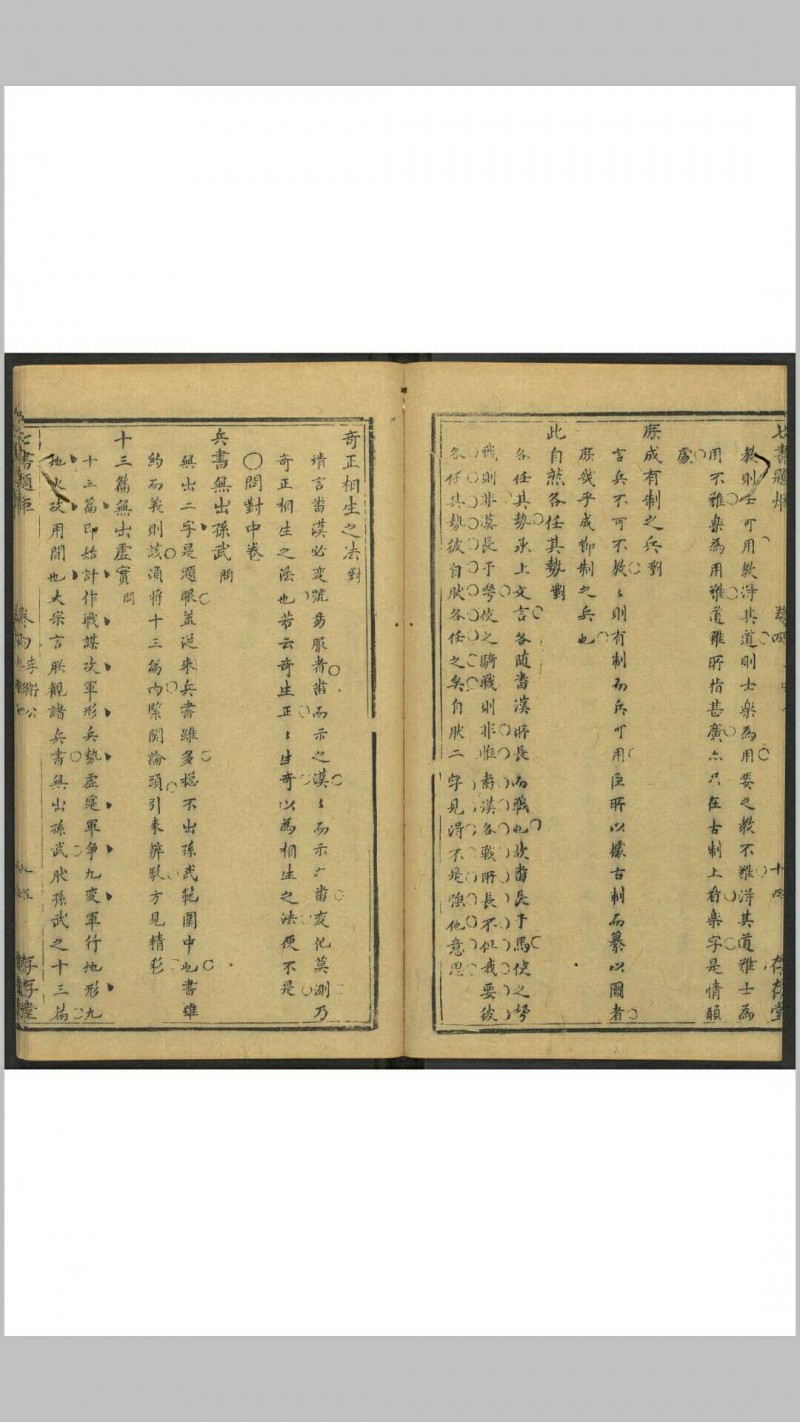 七書題炬
卷四
十四
存存堂
教則士可用教淂其道則士樂為用要之教不雖淂其道雖士為
用不雖樂為用雖道雖所指甚廣亦只在古制上看樂字是情願
處
庶成有制之兵 對
言兵不可不教〻則有制而兵可用臣所以據古制而纂以圖者
庶幾乎成抑制之兵也
此自然各任其勢 對
各任其勢承上文言各随畨漢所長而戰也故畨長于馬使之勞
戰則非漢長于弩使之騎戰則非惟畨漢各戰所長不似我要彼
各任其勢彼自肰各任之矣自肰二字見淂不是強他意思
奇正相生之法 對
靖言畨漢必変號易服者畨而示之漢〻而示之畨変化莫測乃
奇正相生之法也若云奇生正〻生奇以為相生之法便不是
〇問對中卷
兵書無出孫武 問
無出二字是題眼盖從来兵書雖多緫不出孫武範圍中也書雖
約而義則該湏將十三篇内緊関論頭引来辨駁方見精彩
十三篇無出虚實 問
十三篇即始計作戰謀攻軍形兵勢虚寔軍争九変軍行地形九
地火攻用間也太宗言朕観諸兵書無出孫武肰孫武之十三篇
七書題炬
卷四 李衛公
存存堂